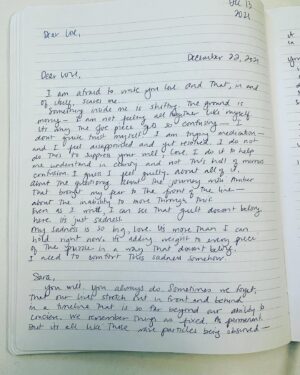 Dec 13
2021
Dear Love,
December 22, 2021
Dear Love,
I am afraid to write you love and that, in and
of itself, scares me.
Something inside me is shifting. The ground is
I am not feeling all together like myself
so confusing
don't quite trust myself. I am trying medication—
and I feel disappointed and yet relieved. I do not
do this to suppress your will, Love. I do it to help
me understand in clarity and not this hell of
confusion. I guess I feel guilty about all of it.
about the questioning, about the journey
That brought my fear to the front of the line—
about the inability to move through
Even as I write, I can see that guilt doesn't belong
here. Its just sadness.
My sadness is so big, Love. Its more than I can
hold right now. Its adding weight to every piece
of the puzzle in a way that doesn't belong.
I need to comfort this sadness somehow.
Sara,
you will. You always do. Sometimes we forget
that our lives stretch out in front and behind
in a timeline that is so far beyond our ability to
conceive. We remember things as fixed. As permanent.
But its all like these wave particles being observed—